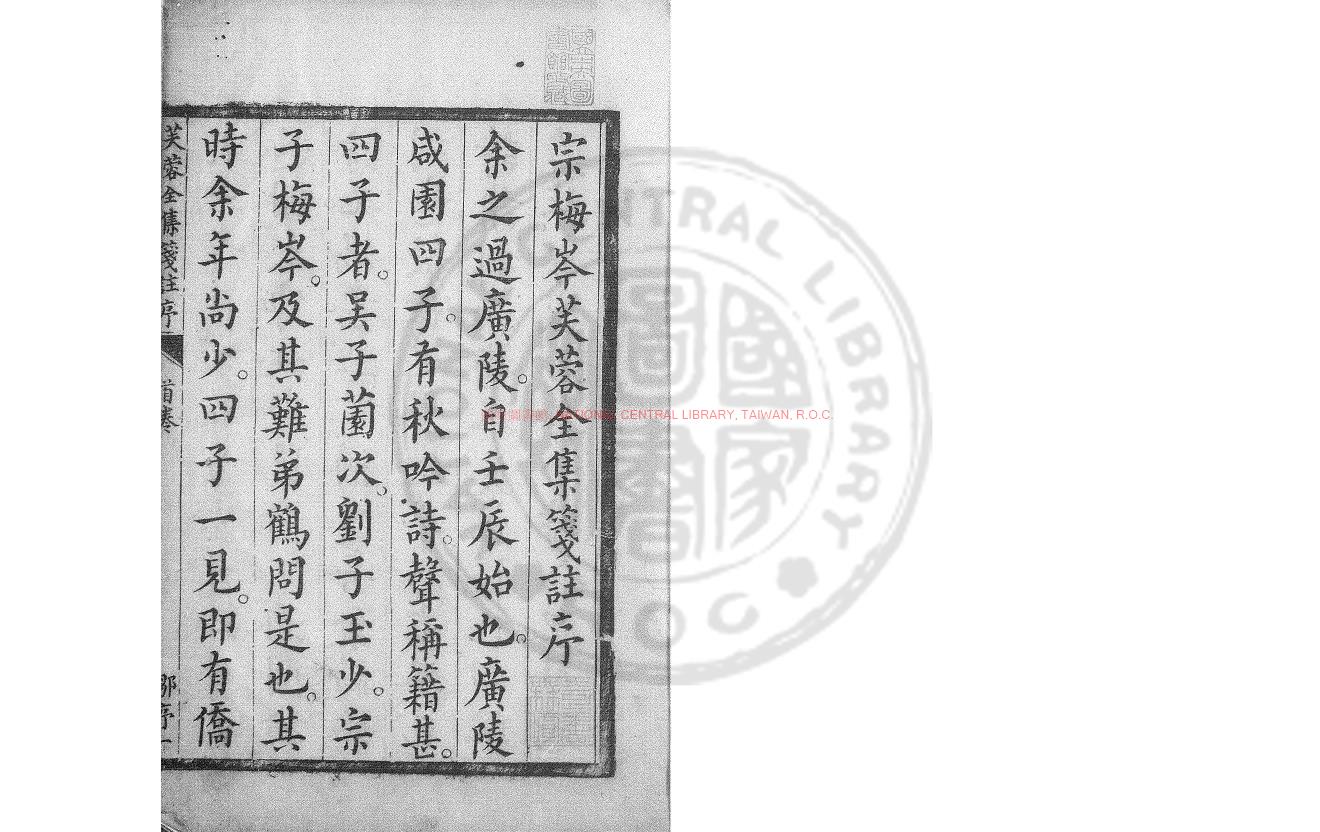 宗梅岑芙蓉全集箋註序
余之過廣陵。自壬辰始也。廣陵
咸園四子。有秋吟詩。聲稱籍甚。
四子者。吴子薗次。劉子玉少。宗
子梅岑。及其難弟鶴問是也。其
時余年尚少。四子一見。即有僑
芙蓉全集箋註序
首卷
鄒序
NATIONAL CENTRAL LIBRARY, TAIWAN, R.O.C.
CENTRAL LIBRARY
ROC